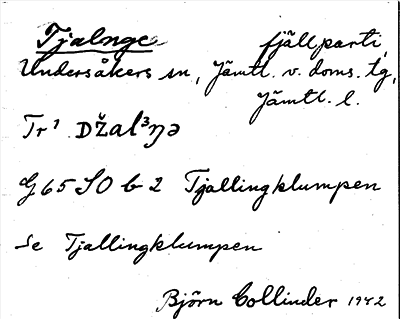 Tjalnge fjällparti,
Undersåkers sn, Jämtl. v. doms. tg,
Jämtl. l.
Tr¹ Džal³ŋə
G 65 SO b 2 Tjallingklumpen
Se Tjallingklumpen
Björn Collinder 1942